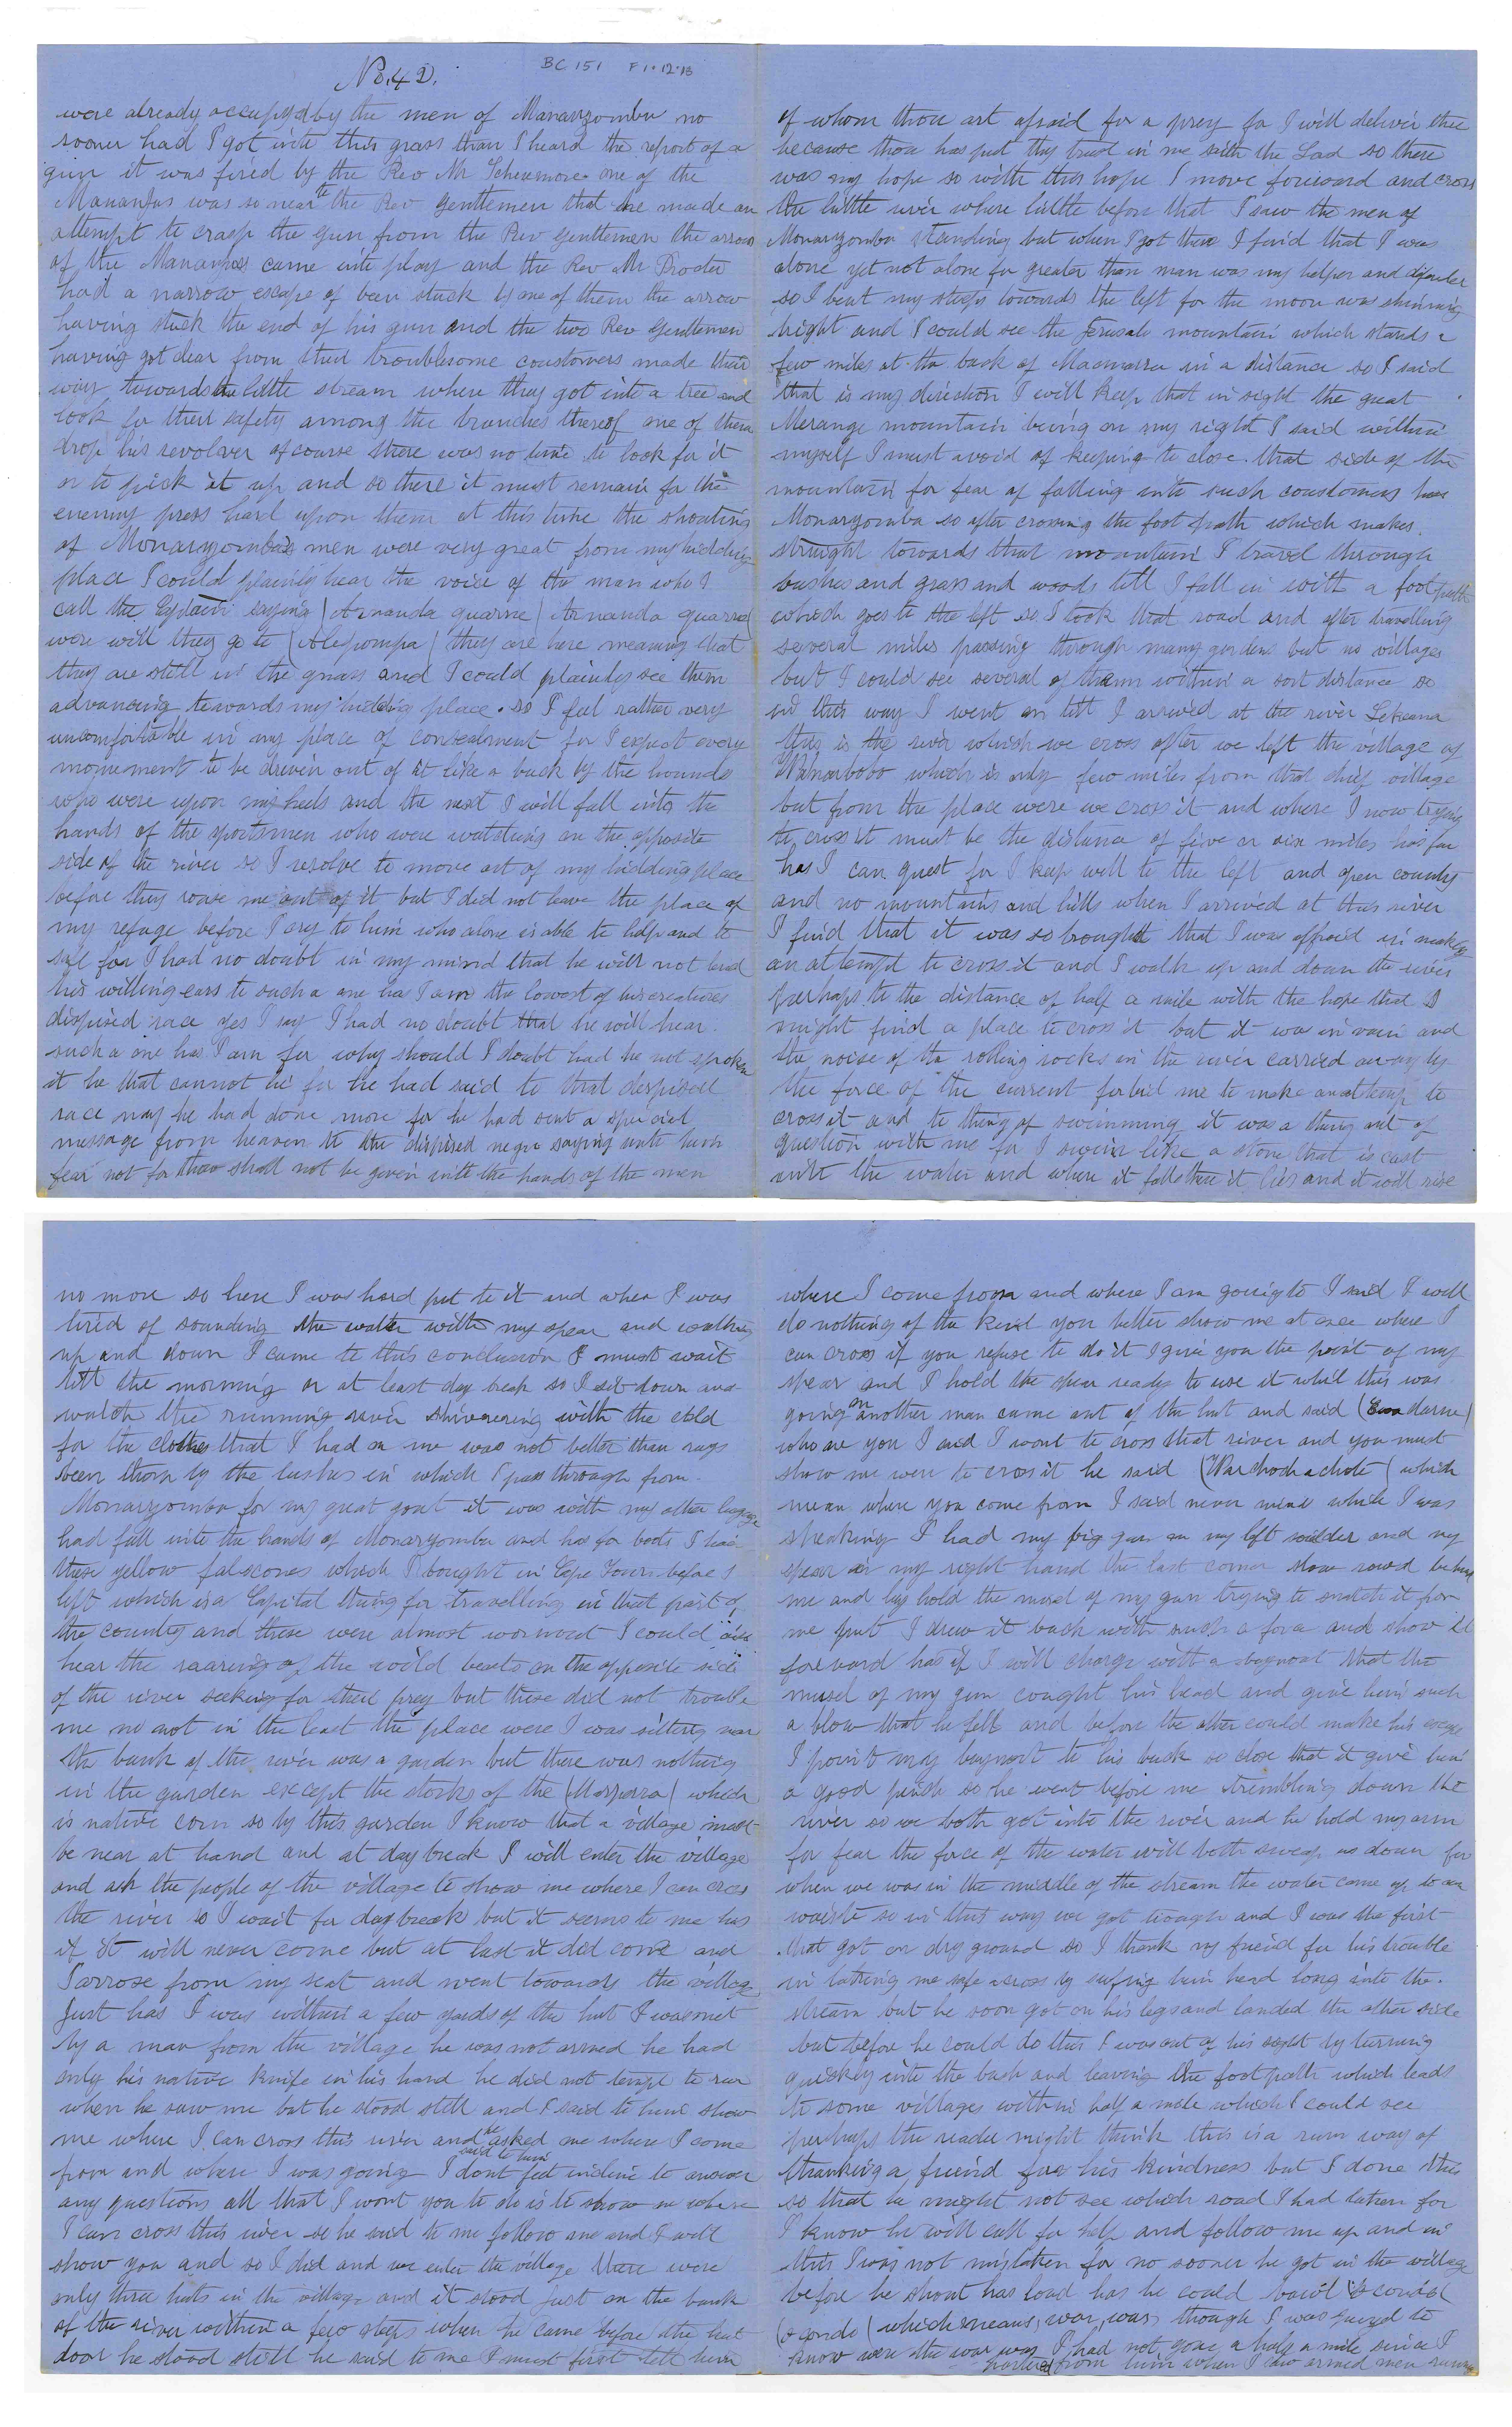 No. 42.
BC 151 F1.12.13
were already occupyd by the men of Manarzomba no
sooner had I got into this grass than I heard the report of a
gun it was fired by the Rev Mr Scheermore one of the
Mananjas was so near to the Rev gentlemen that he made an
attempt to crasp the gun from the Rev gentlemen the arrow
of the Mananjas came into play and the Rev Mr Procter
had a narrow escape of been stuck by one of them the arrow
having stuck the end of his gun and the two Rev Gentlemen
having got clear from their troublesome coustomers made their
way towards the little stream where they got into a tree and
look for their safety among the branches thereof one of them
drop his revolver of course there was no time to look for it
or to pick it up and so there it must remain for the
enemy press hard upon them at this time the shouting
of Monarzomba's men were very great from my hidding
place I could plainly hear the voice of the man who I
call the Captain saying (Arnanda quarne) Arnanda quarne)
were will they go to (Alepompa) they are here meaning that
they are still in the grass and I could plainley see them
advancing towards my hidding place. so I feel rather very
uncomfortable in my place of consealment for I expect every
monement to be driven out of it like a buck by the hounds
who were upon my heels and the next I will fall into the
hands of the sportsmen who were watching on the opposite
side of the river so I resolve to move out of my hidding place
before they rouse me out of it but I did not leave the place of
my refuge before I cry to him who alone is able to help and to
safe for I had no doubt in my mind that he will not lend
his willing ears to such a one has I am the lowest of his creatures
dispised race yes I say I had no doubt that he will hear
such a one has I am for why should I doubt had he not spoken
it he that cannot lie for he had said to that despised
race nay he had done more for he had sent a special
message from heaven to the dispised negro saying unto him
fear not for thou shall not be given into the hands of the men
of whom thou art afraid for a prey for I will deliver thee
because thou has put thy trust in me saith the Lord so there
was my hope so with this hope I move forward and cross
the little river where little before that I saw the men of
Monarzomba standing but when I got there I find that I was
alone yet not alone for greater than man was my helper and difender
so I bent my steeps towards the left for the moon was shinning
bright and I could see the Jerusale mountain which stands a
few miles at the back of Macmarra in a distance so I said
that is my direction I will keep that in sight the great
Merange mountain being on my right I said within
myself I must avoid of keeping to close that side of the
mountain for fear of falling into such coustomers has
Monarzomba so after crossing the foot path which makes
straight towards that mountain I travel through
bushes and grass and woods till I fall in with a foot path
which goes to the left so I took that road and after travelling
several miles passing through many gardens but no villages
but I could see several of them within a sort distance so
in this way I went on till I arrived at the river Lekeana
this is the river which we cross after we left the village of
which is only few miles from that chief village
but from the place were we cross it and where I now trying
to cross it must be the distance of five or six miles has far
has I can guest for I keep well to the left and open county
and no mountains and hills when I arrived at this river
I find that it was so brought that I was affraid in making
an attempt to cross it and I walk up and down the river
perhaps to the distance of half a mile with the hope that I
might find a place to cross it but it was in vain and
the noise of the rolling rocks in the river carried away by
the force of the current forbid me to make an attemp to
cross it and to thing of swimming it was a thing out of
question with me for I swim like a stone that is cast
into the water and where it falls there it lies and it will rise
no more so here I was hard put to it and when I was
tired of sounding the water with my spear and walking
up and down I came to this conclusion I must wait
till the morning or at least day break so I sit down and
watch the running river shiverering with the cold
for the clothes that I had on me was not better than rags
been thorn by the bushes in which I pass through from
Monarzomba for my great goat it was with my other luggage
had fall into the hands of Monarzomba and has for boots I had
these yellow falscones which I bought in Cape Town before I
left which is a Capital thing for travelling in that part of
the country and these were almost wornout I could also
hear the raaring of the wild beats on the opposite side
of the river seeking for their prey but these did not trouble
me no not in the least the place were I was sitting near
the bank of the river was a garden but there was nothing
in the garden except the storks of the (Marparra) which
is native corn so by this garden I know that a village must
be near at hand and at day break I will enter the village
and ask the people of the village to show me where I can cross
the river so I wait for day break but it seems to me has
if it will never come but at last it did come and
I arrose from my seat and went towards the village
Just has I was within a few yards of the hut I was met
by a man from the village he was not armed he had
only his native knife in his hand he did not tempt to run
when he saw me but he stood still and I said to him show
me where I can cross this river and he asked me where I come
from and where I was going I said to him dont feel incline to answer
any questions all that I wont you to do is to show me where
I can cross this river so he said to me follow me and I will
show you and so I did and we enter the village there were
only three huts in the village and it stood just on the bank
of the river within a few steps when he came before the hut
door he stood still he said to me I must first tell him
where I come from and where I am going to I said I will
do nothing of the kind you better show me at once where I
can cross if you refuse to do it I give you the point of my
spear and I hold the spear ready to use it whil this was
going on another man came out of the hut and said ( darne)
who are you I said I wont to cross that river and you must
show me were to cross it he said (Warchochachote) which
mean where you come from I said never mind while I was
speaking I had my big gun on my left soulder and my
spear in my right hand the last comer show rowd behind
me and lay hold the musel of my gun trying to snatch it from
me but I drew it back with such a force and show it
foreward has if I will charge with a baynoat that the
musel of my gun cought his head and give him such
a blow that he fell and before the other could make his escape
I point my baynort to his back so close that it give him
a good pinch so he went before me trembling down the
river so we both got into the river and he hold my arm
for fear the force of the water will both sweap us down for
when we was in the middle of the stream the water came up to our
waiste so in this way we got trough and I was the first
that got on dry ground so I thank my friend for his trouble
in latting me safe across by him head long into the
stream but he soon got on his legs and landed the other side
but before he could do this I was out of his sight by turning
quickly into the bush and leaving the foot path which leads
to some villages within half a mile which I could see
perhaps the reader might think this is a rum way of
thanking a friend for his kindness but I done this
so that he might not see which road I had taken for
I know he will call for help and follow me up and in
this I was not mistaken for no sooner he got in the village
before he shout has loud has he could
(o condo) which means, war, war, though I was puzzed to
know were the war was I had not gone a half a mile since I
parted from him when I saw armed men running